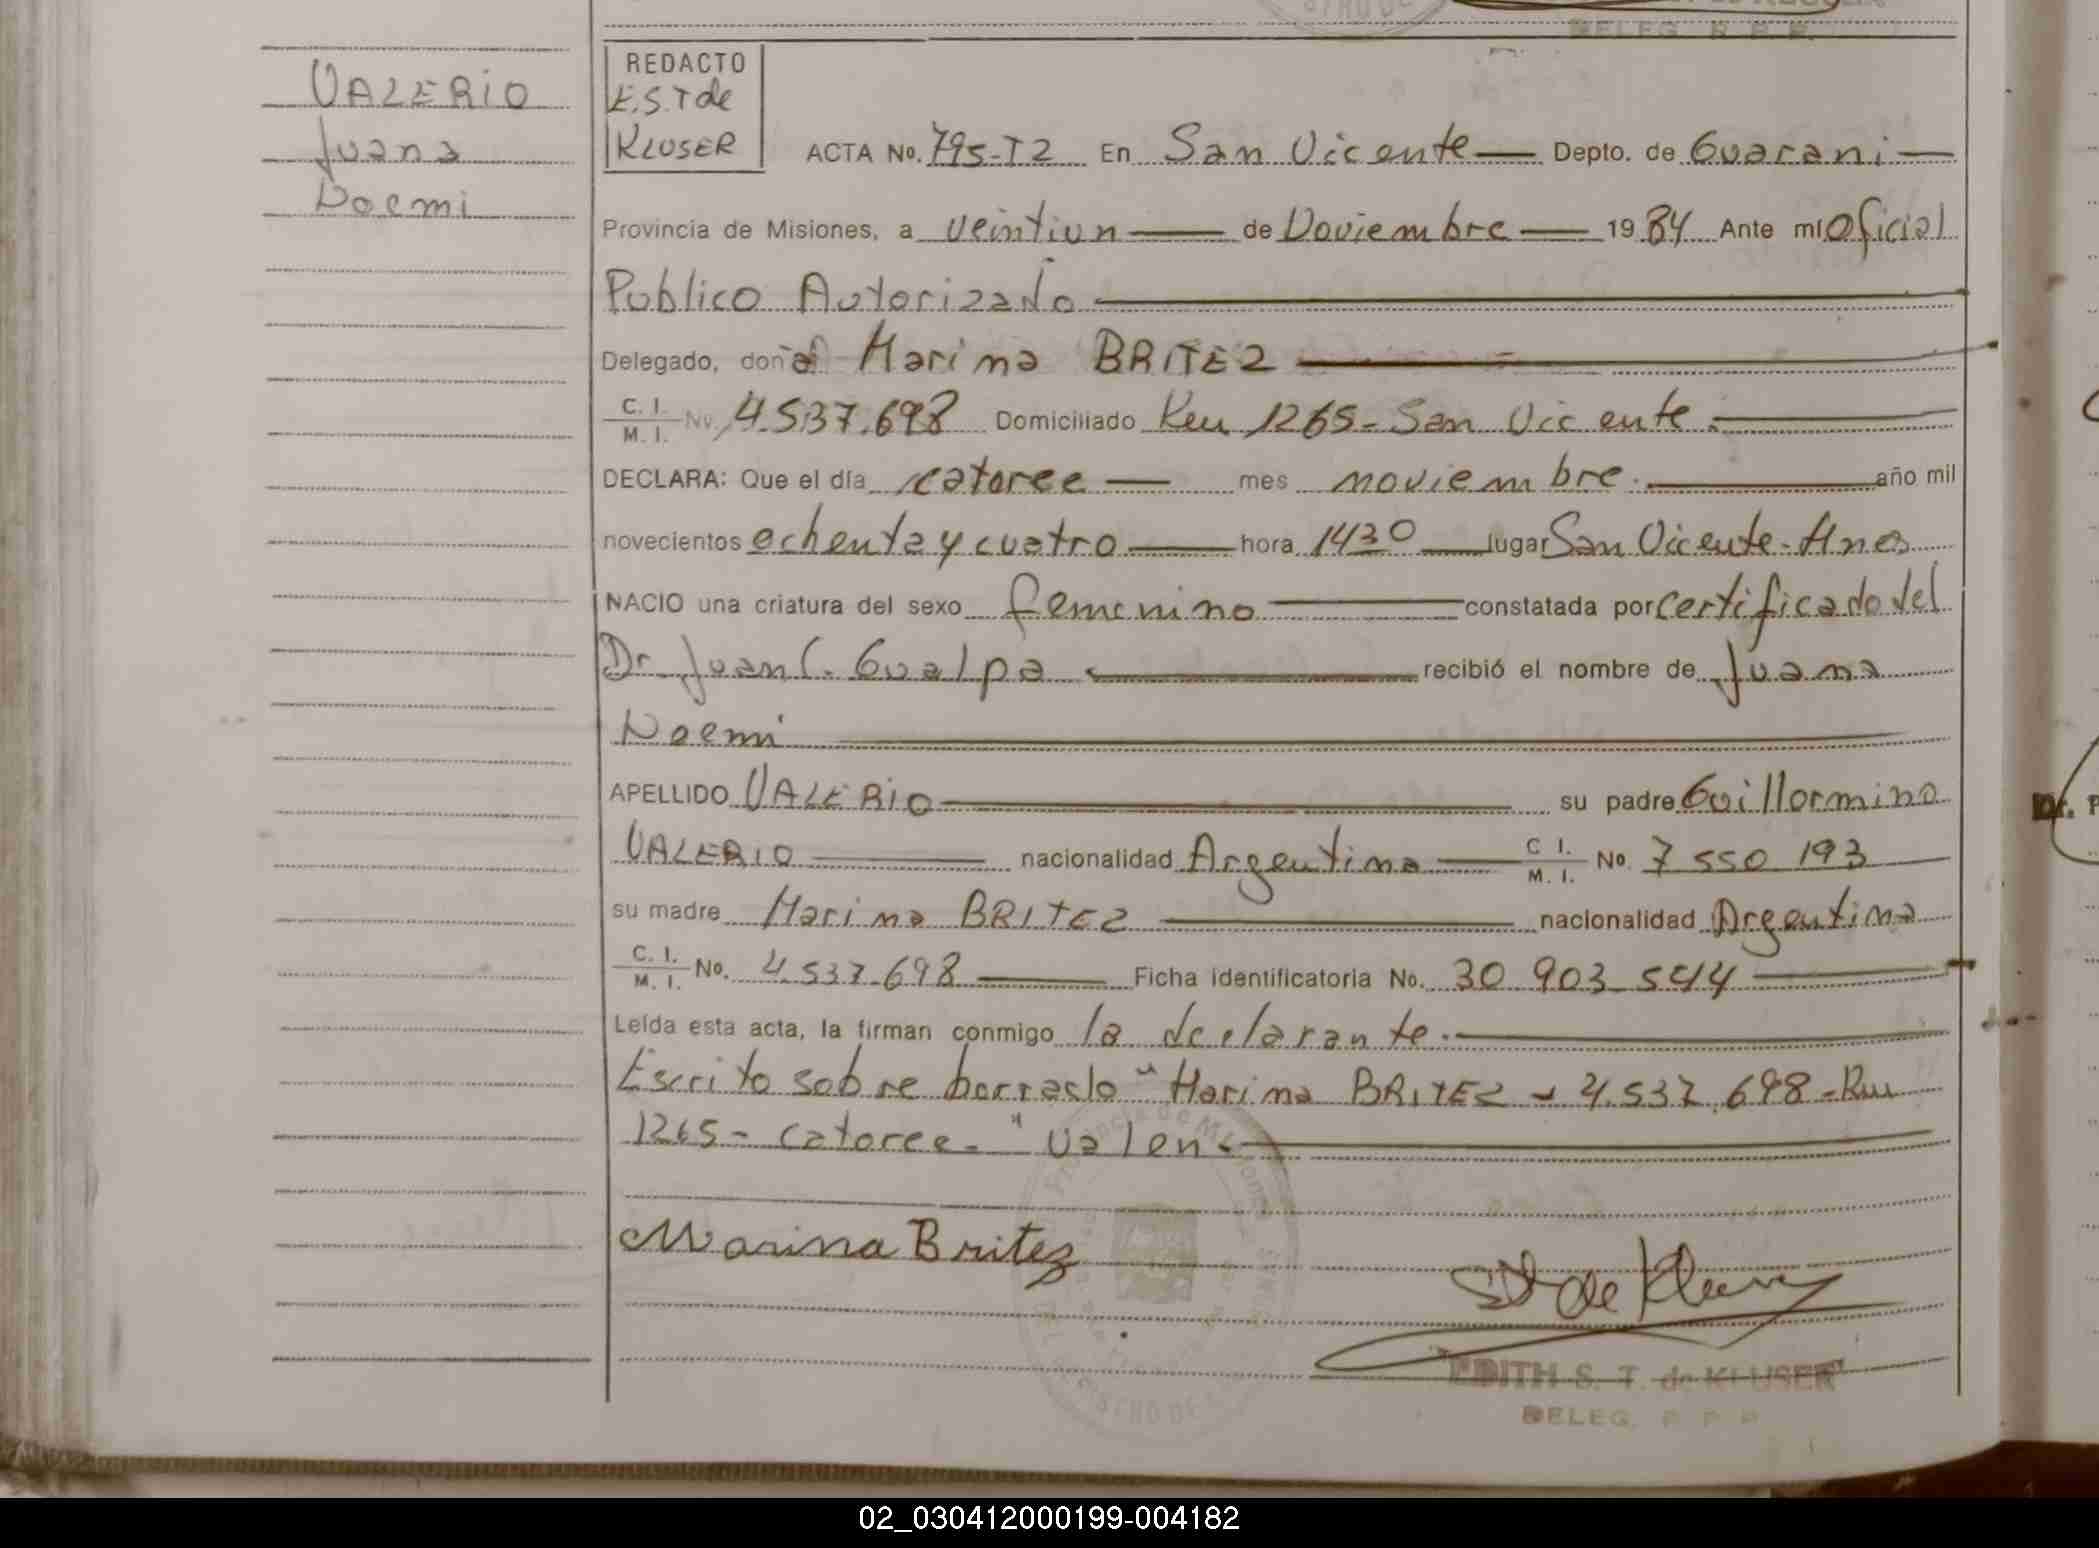 VALERIO
Juana
Noemi
REDACTO
E.S.T de
KLUSER
ACTA No. 795-T2 En San Vicente — Depto. de Guarani —
Provincia de Misiones, a veintiun — de Noviembre — 19 84 Ante mi Oficial
Publico Autorizado
Delegado, doña Marina BRITEZ
C. I. M. I. No. 4.537.698 Domiciliado Ruu 1265 - San Vicente.
DECLARA: Que el día catorce — mes noviembre. año mil
novecientos ochenta y cuatro — hora 1430 lugar San Vicente - Mnes
NACIO una criatura del sexo femenino constatada por certificado del
Dr Juan C. Gualpa recibió el nombre de Juana
Noemi
APELLIDO VALERIO su padre Guillormino
VALERIO nacionalidad Argentina C I. M. I. No. 7 550 193
su madre Marina BRITEZ nacionalidad Argentina
C. I. M. I. No. 4.537.698 Ficha identificatoria No. 30 903 544
Leída esta acta, la firman conmigo la declarante.
Escrito sobre borrado "Marina BRITEZ - 4.537.698 - Ruu
1265 - catorce - " valen
Marina Britez
EDITH S. T. de KLUSER
DELEG. R. P. P.
02_030412000199-004182